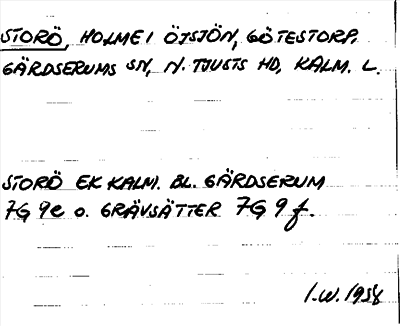 STORÖ, HOLME I ÖTSJÖN, GÖTESTORP.
GÄRDSERUMS SN, N. TJUSTS HD, KALM. L.
STORÖ EK KALM. BL. GÄRDSERUM
7G 9e o. GRÄVSÄTTER 7G 9 f.
I.W. 1958